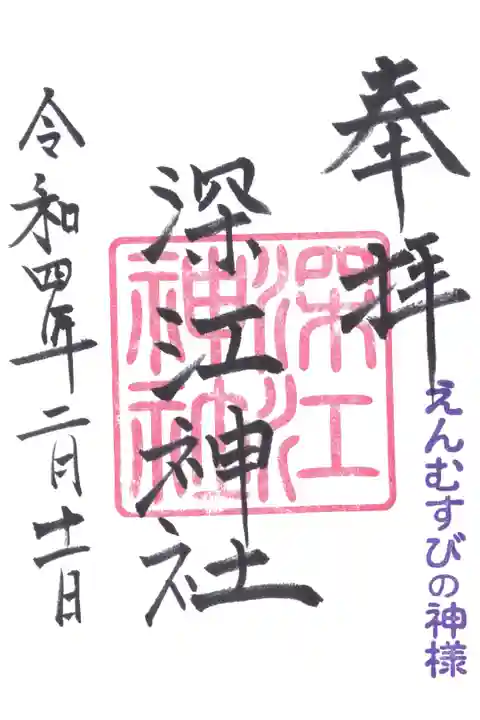 奉拝
えんむすびの神様
深江神社
深江
神社
令和四年二月十一日